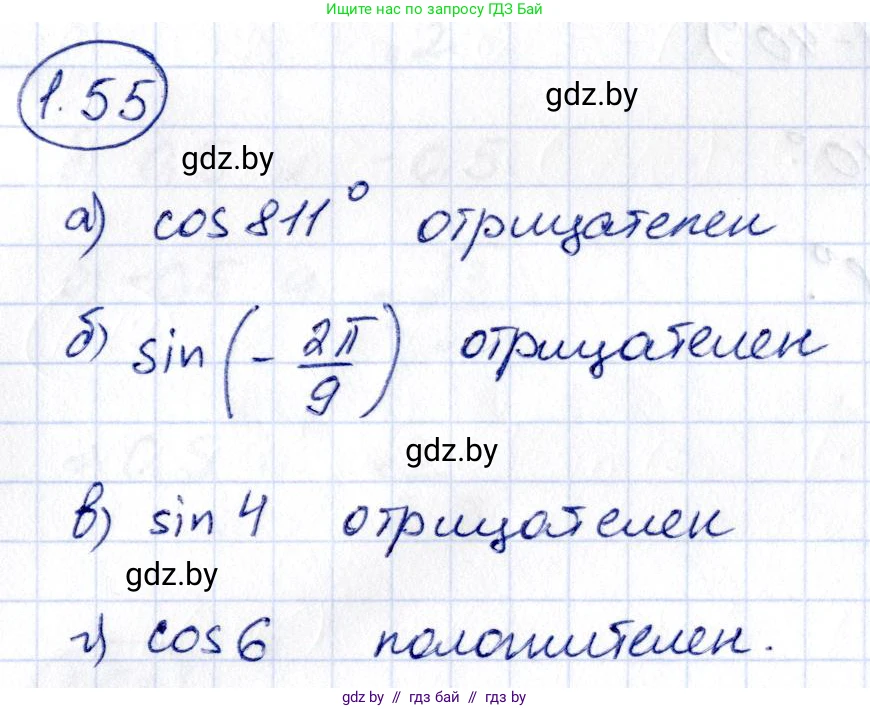 Ищите нас по запросу ГДЗ Бай
1.55
gdz.by
gdz.by
а) cos 811° отрицателен
б) sin (- 2π/9) отрицателен
gdz.by
в) sin 4 отрицателен
gdz.by
г) cos 6 положителен.
gdz.by // гдз бай // gdz.by